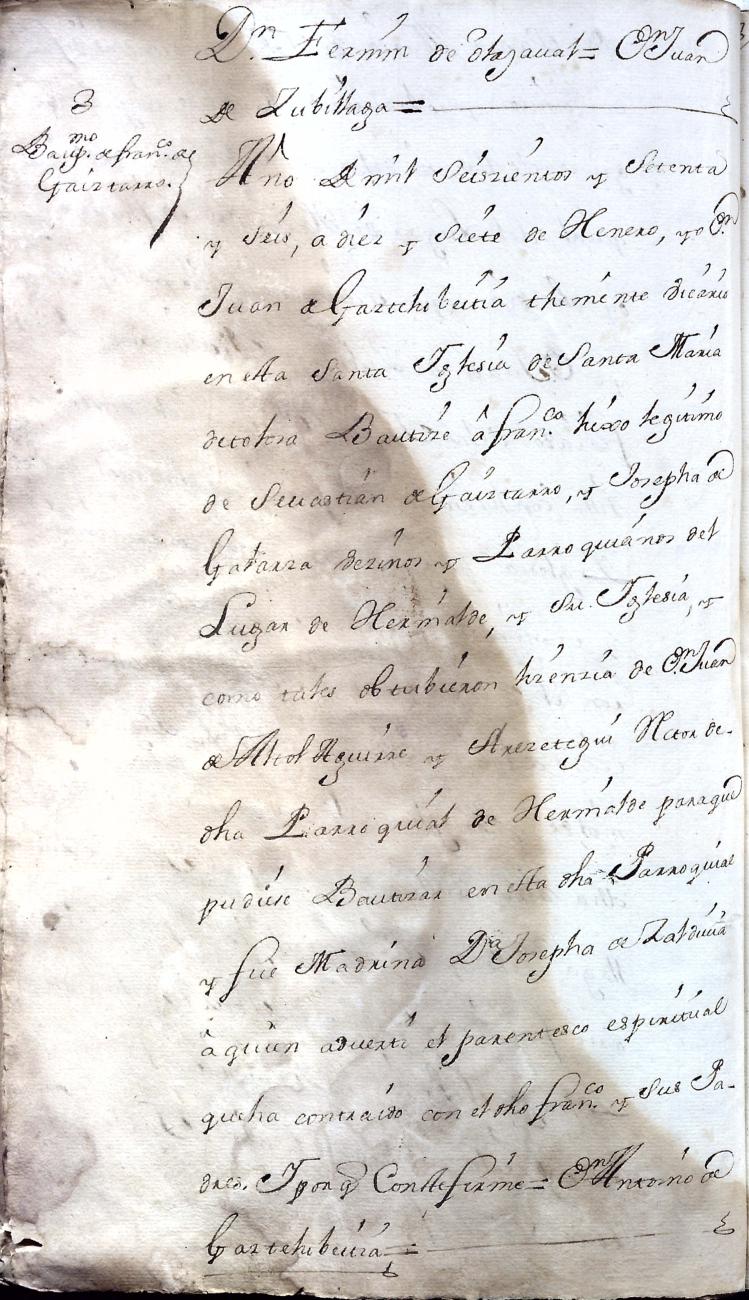 Dn. Fermin de olazaval= Dn Juan
de Zubillaga=
3
Baupmo. de franco. de
Gaiztarro.
Año de mil seiszientos y setenta
y seis, a diez y siete de Henero, yo Dn.
Juan de Gaztchibeitia theniente vicario
en esta santa Iglesia de Santa Maria
de tolosa Bautize â franco. hixo legitimo
de Sevastian de Gaiztarro, y Josepha de
Galarza vezinos y Parroquianos del
Lugar de Hernialde, y su Iglesia, y
como tales obtubieron lizenzia de Dn. Juan
de Altol Aguirre y Arezetegui Retor de-
dha Parroquial de Hernialde paraque
pudiese Bautizar en esta dha Parroquial
y fue Madrina Da Josepha de Zalduvia
â quien adverti el parentesco espiritual
queha contraido con el dho franco. y sus Pa-
dres. Y por q Conste firme= Dn Antonio de
Gaztchibeitia=